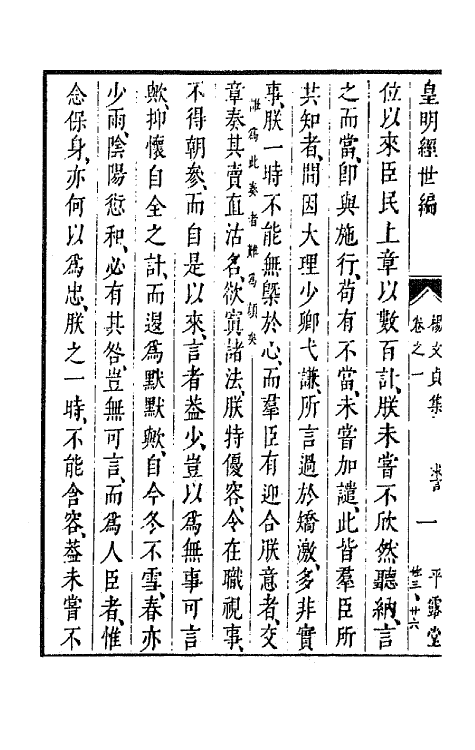 皇明經世編
楊文貞集
卷之一
一
平露堂
位以來臣民上章以數百計、朕未嘗不欣然聽納、言
之而當、卽與施行、苟有不當、未嘗加譴、此皆羣臣所
共知者、間因大理少卿弋謙所言過於矯激、多非實
事、朕一時不能無槩於心、而羣臣有迎合朕意者、交
雖爲此奏者難爲顏矣
章奏其賣直沽名、欲寘諸法、朕特優容、令在職視事、
不得朝參、而自是以來、言者益少、豈以爲無事可言
歟、抑懷自全之計、而遏爲默默歟、自今冬不雪、春亦
少雨、陰陽愆和、必有其咎、豈無可言、而爲人臣者、惟
念保身、亦何以爲忠、朕之一時、不能含容、葢未嘗不